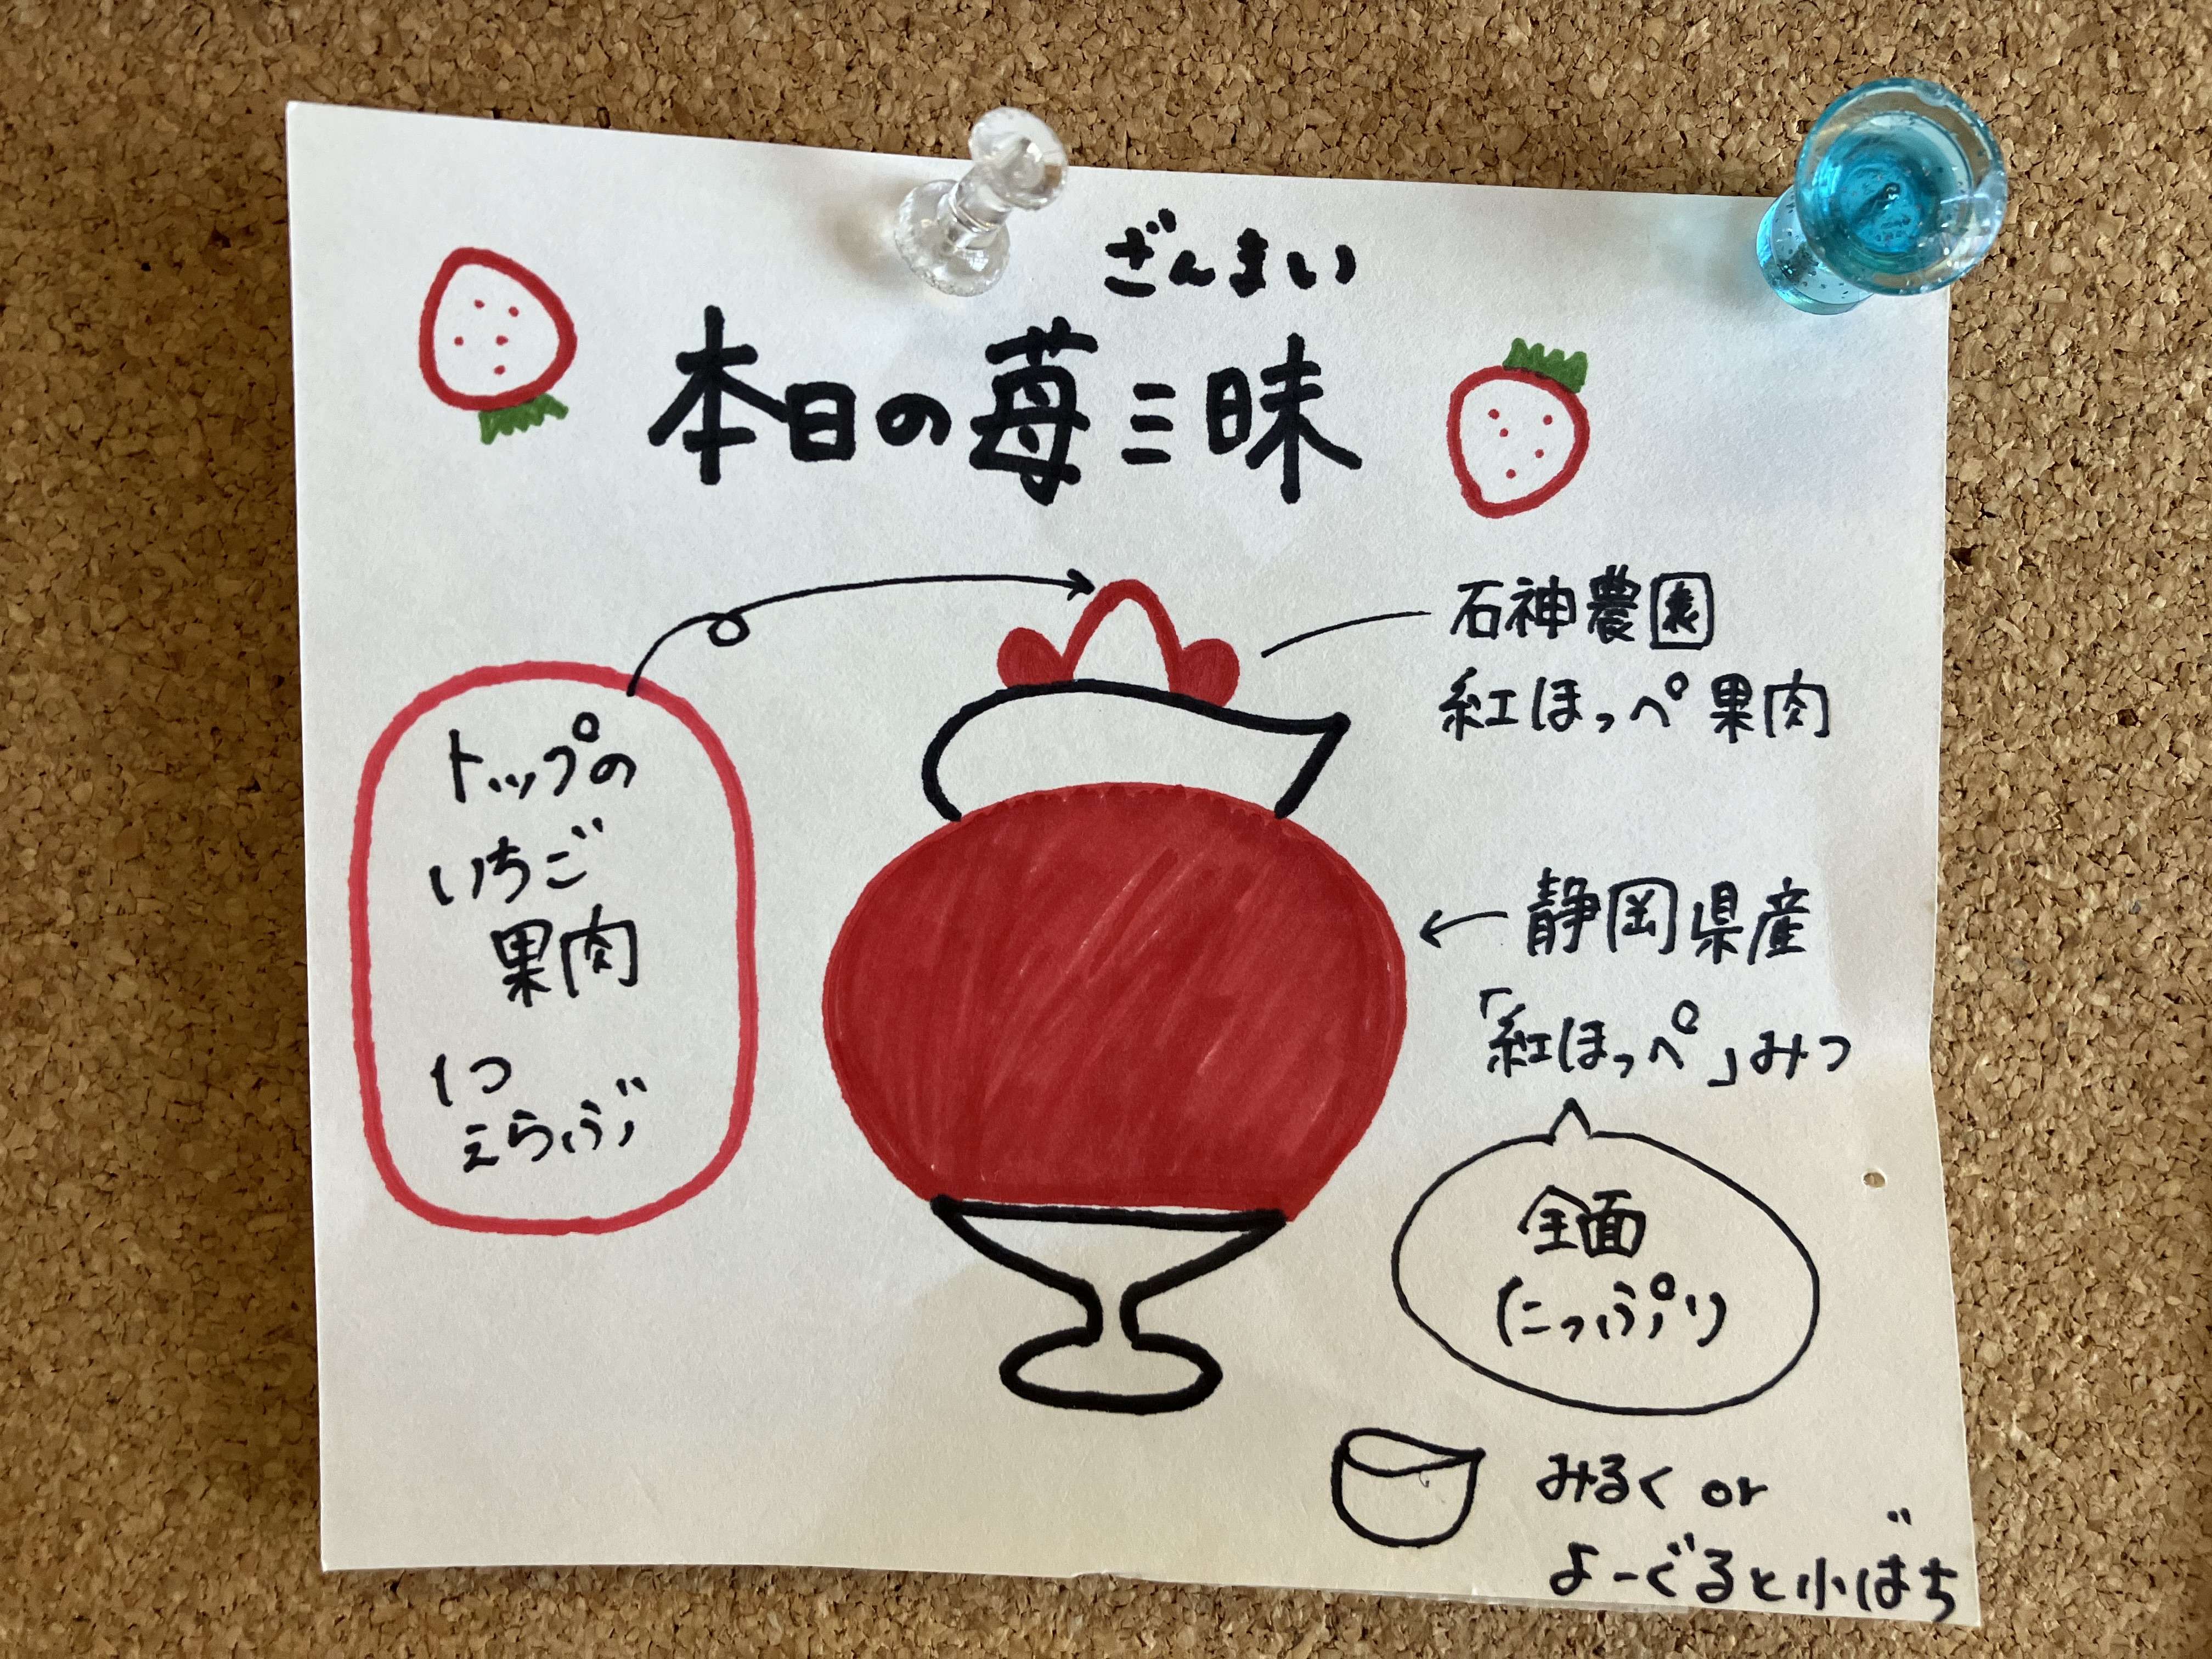 ざんまい
本日の苺三昧
石神農園
紅ほっぺ果肉
トップの
いちご
果肉
1つ
えらぶ
静岡県産
「紅ほっぺ」みつ
全面
にっぷり
みるく or
よーぐると小ばち